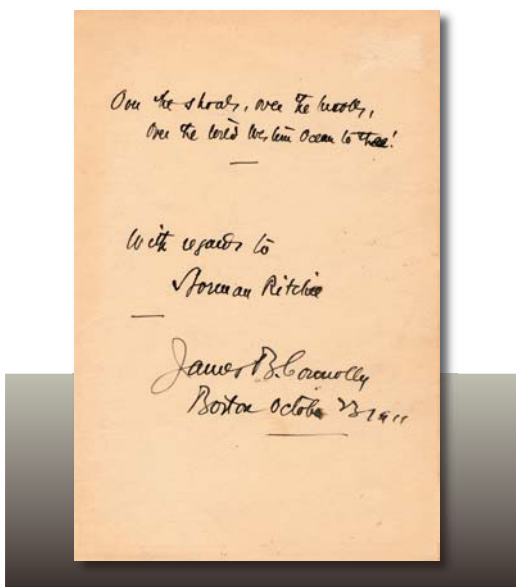 Over the shoals, over the
Over the Western Ocean to thee!
With regards to
Norman Ritchie
James B. Connolly
Boston October 23 1911